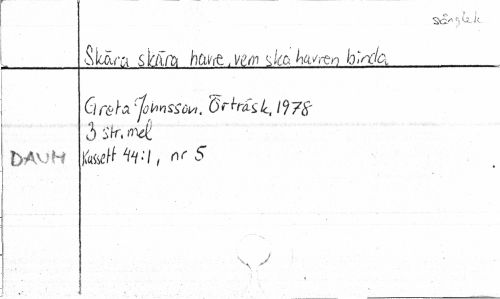 sånglek
Skära skära havre, vem ska havren binda
Greta Johnsson. Örträsk, 1978
3 str. mel
DAUM
Kassett 44:1, nr 5